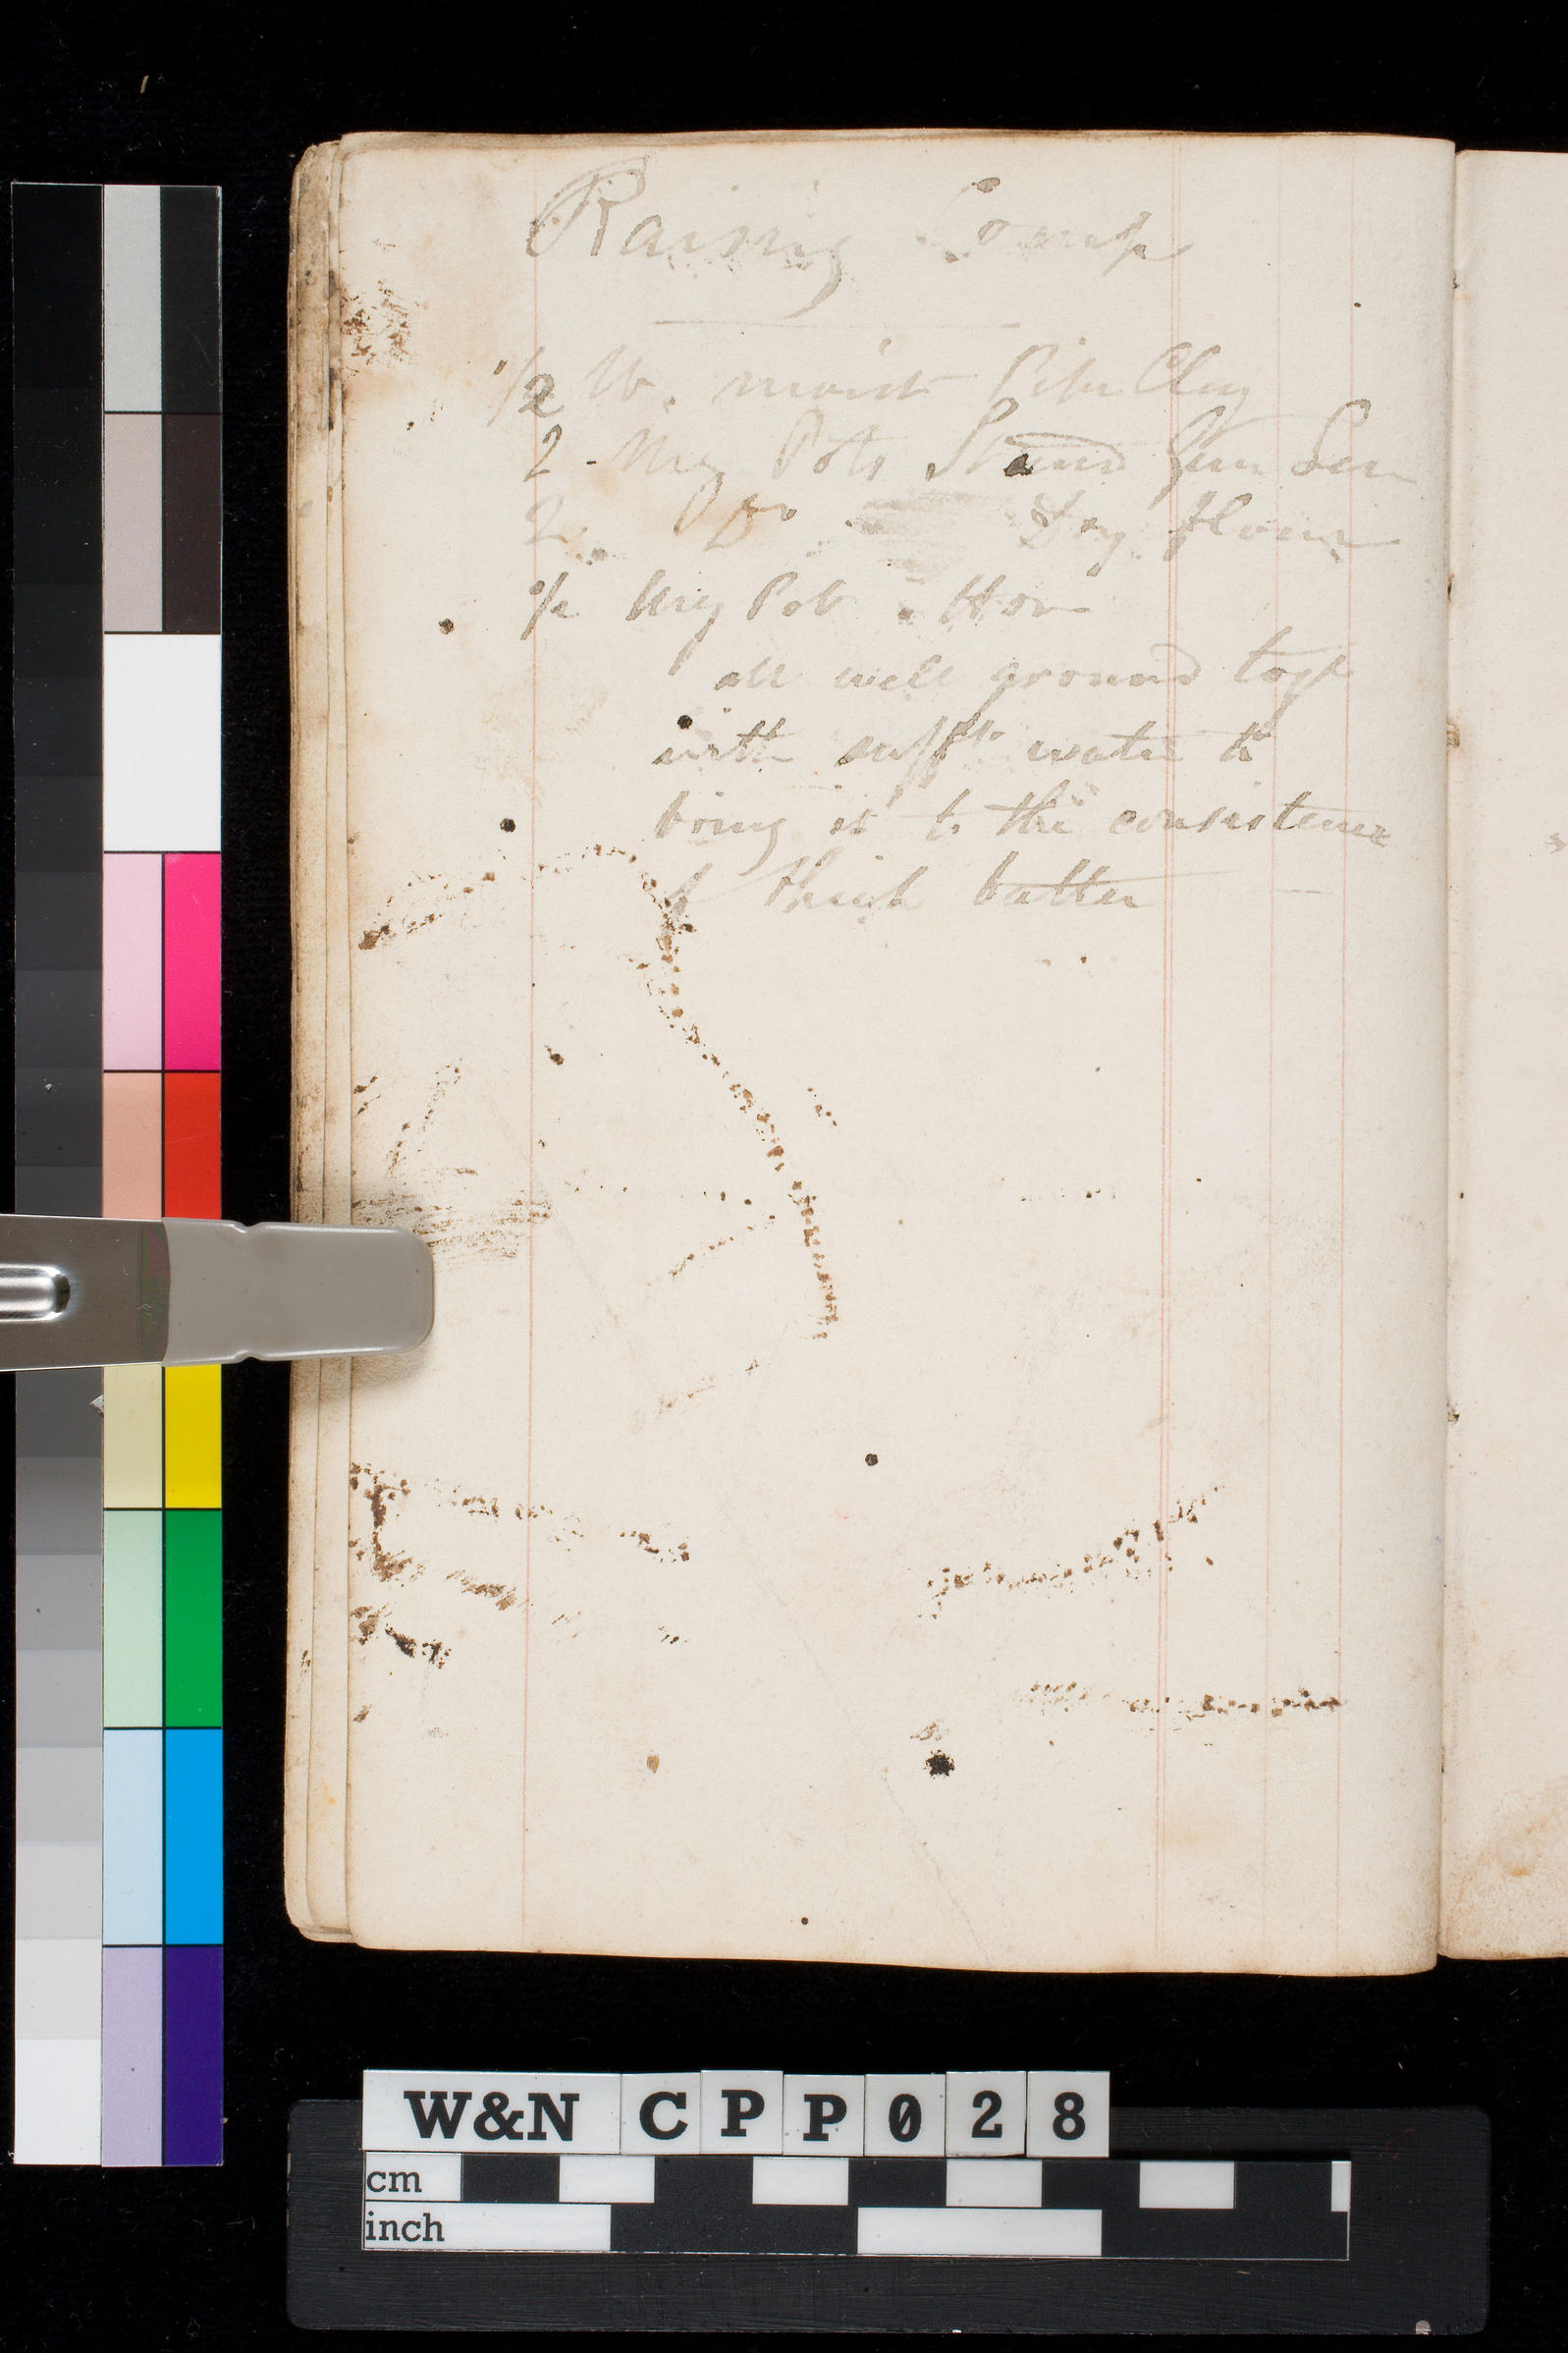 Raising Comp
1/2 lb. moist Pipe Clay
2 - Meg Pots Strained Gum Sen
2 Do Dry flour
1/2 Meg Pot Hon
all well ground togr
with sufft water to
bring it to the consistence
of thick batter
W&N CPP028
cm
inch